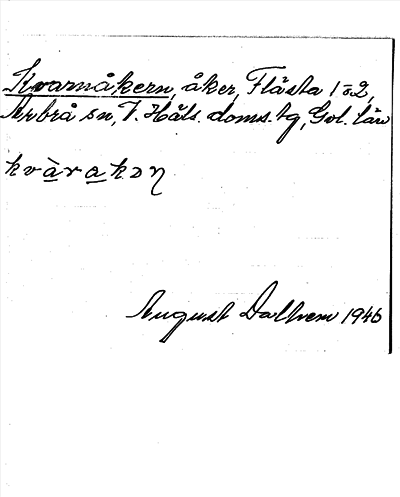 Kvarnåkern, åker, Flästa 1 o 2,
Arbrå sn, V. Häls. doms. tg, Gvl. län
kvàrakən
August Dalhem 1946